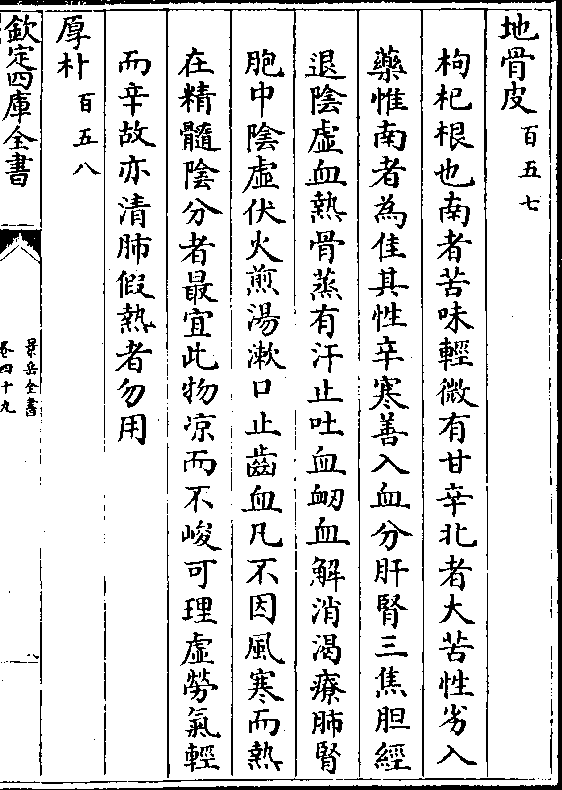 地骨皮百五七
枸杞根也南者苦味輕微有甘辛北者大苦性劣入
藥惟南者為佳其性辛寒善入血分肝腎三焦胆經
退陰虛血熱骨蒸有汗止吐血衂血解消渴療肺腎
胞中陰虛伏火煎湯漱口止齒血凡不因風寒而熱
在精髓陰分者最宜此物凉而不峻可理虛勞氣輕
而辛故亦清肺假熱者勿用
厚朴百五八
欽定四庫全書
景岳全書
卷四十九